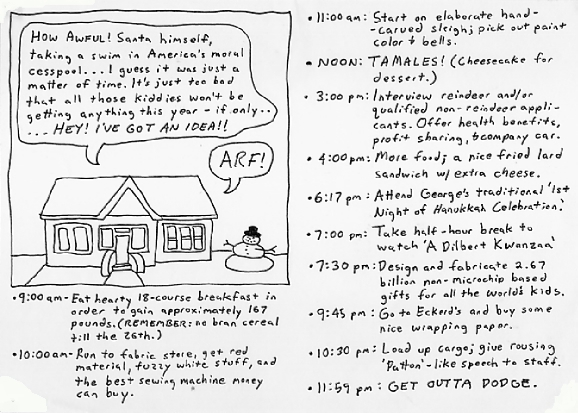 HOW AWFUL! Santa himself,
taking a swim in America's moral
cesspool... I guess it was just a
matter of time. It's just too bad
that all those kiddies won't be
getting anything this year - if only..
... HEY! I'VE GOT AN IDEA!!
ARF!
• 9:00 am - Eat hearty 18-course breakfast in
order to gain approximately 167
pounds. (REMEMBER: no bran cereal
till the 26th.)
• 10:00 am - Run to fabric store, get red
material, fuzzy white stuff, and
the best sewing machine money
can buy.
• 11:00 am: Start on elaborate hand-
-carved sleigh; pick out paint
color & bells.
• NOON: TAMALES! (Cheesecake for
dessert.)
• 3:00 pm: Interview reindeer and/or
qualified non-reindeer appli-
cants. Offer health benefits,
profit sharing, & company car.
• 4:00 pm: More food; a nice fried lard
sandwich w/ extra cheese.
• 6:17 pm: Attend George's traditional '1st
Night of Hanukkah Celebration.'
• 7:00 pm: Take half-hour break to
watch 'A Dilbert Kwanzaa'
• 7:30 pm: Design and fabricate 2.67
billion non-microchip based
gifts for all the world's kids.
• 9:45 pm: Go to Eckerd's and buy some
nice wrapping paper.
• 10:30 pm: Load up cargo; give rousing
'Patton'-like speech to staff.
• 11:59 pm: GET OUTTA DODGE.